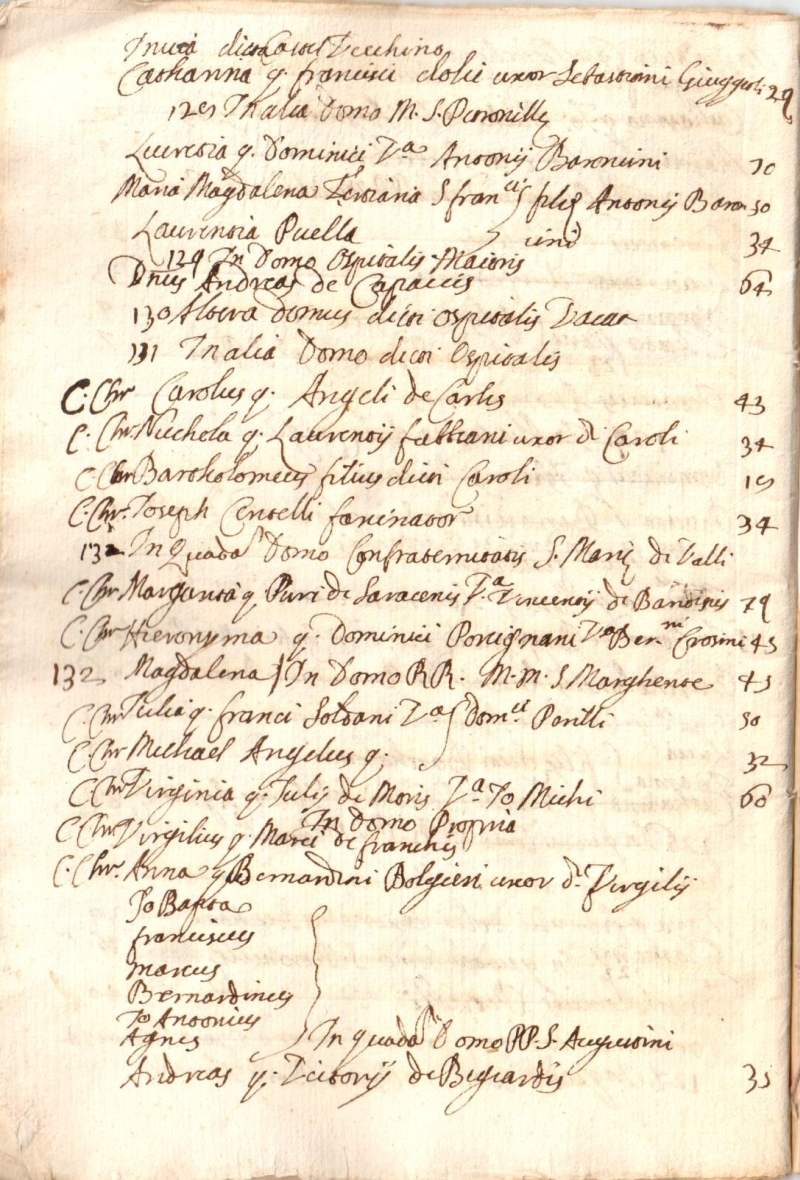 In via dicta Castel Vecchino
Catharina q. francisci uxor Sebastiani 29
129 In alia Domo M. S. Petronille
Lucretia q. Dominici V.a Antonij Baroncini 70
Maria Magdalena Tertiaria S. fran.ci filie Antonij Baron 50
cini
Laurentia Puella 34
129 In Domo Ospitalis Maioris
Dnus Andreas de Capaccis 64
130 Altera domus dicti Ospitalis Vacat
131 In alia Domo dicti Ospitalis
C. Chr Carolus q. Angeli de Carlis 43
C. Chr. Nichola q. Laurentij fabbiani uxor d. Caroli 34
C. Chr Bartholomeus filius dicti Caroli 19
C. Chr. Joseph Centelli farinator 34
132 In Quada Domo Confraternitatis S. Marie di Valli
C. Chr Margarita q. Puri de Saracenis V.a Vincentij de Bandinis 79
C. Chr Hieronyma q. Dominici Porcignani V.a Ber.ni Crosini 45
132 Magdalena In Domo RR. M.M. S. Margherite 45
C. Chr Iulia q. franci Soldani V.a Dom.ci Pontti 50
C. Chr Michael Angelus q. 32
C. Chr Virginia q. Julij de Moris V.a Jo Michi 60
In Domo Propria
C. Chr Virgilius q. Marci de franchis
C. Chr. Anna q. Bernardini Bolgieri uxor d. Virgilij
Jo Bapta
franciscus
Marcus
Bernardinus
Jo Antonius
Agnes
In quada Domo PP. S. Augustini
Andreas q. Victorij de 35